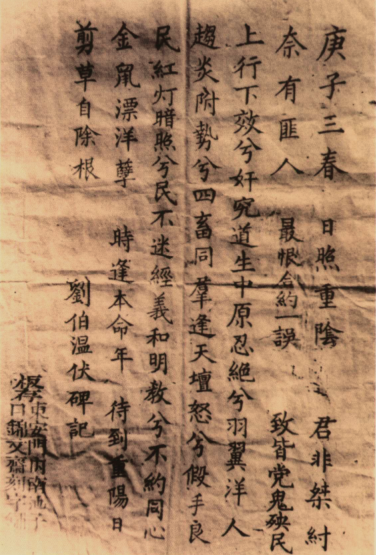 庚子三春 日照重陰 君非桀紂
奈有匪人 最恨和約一誤 致皆党鬼殃民
上行下效兮奸究道生中原忍絶兮羽翼洋人
趨炎附勢兮四畜同羣逢天壇怒兮假手良
民紅灯暗照兮民不迷經義和明教兮不約同心
金鼠漂洋孽 時逢本命年 待到重陽日
剪草自除根 劉伯温伏碑記
東安門内南池子
口錦文齋刻字